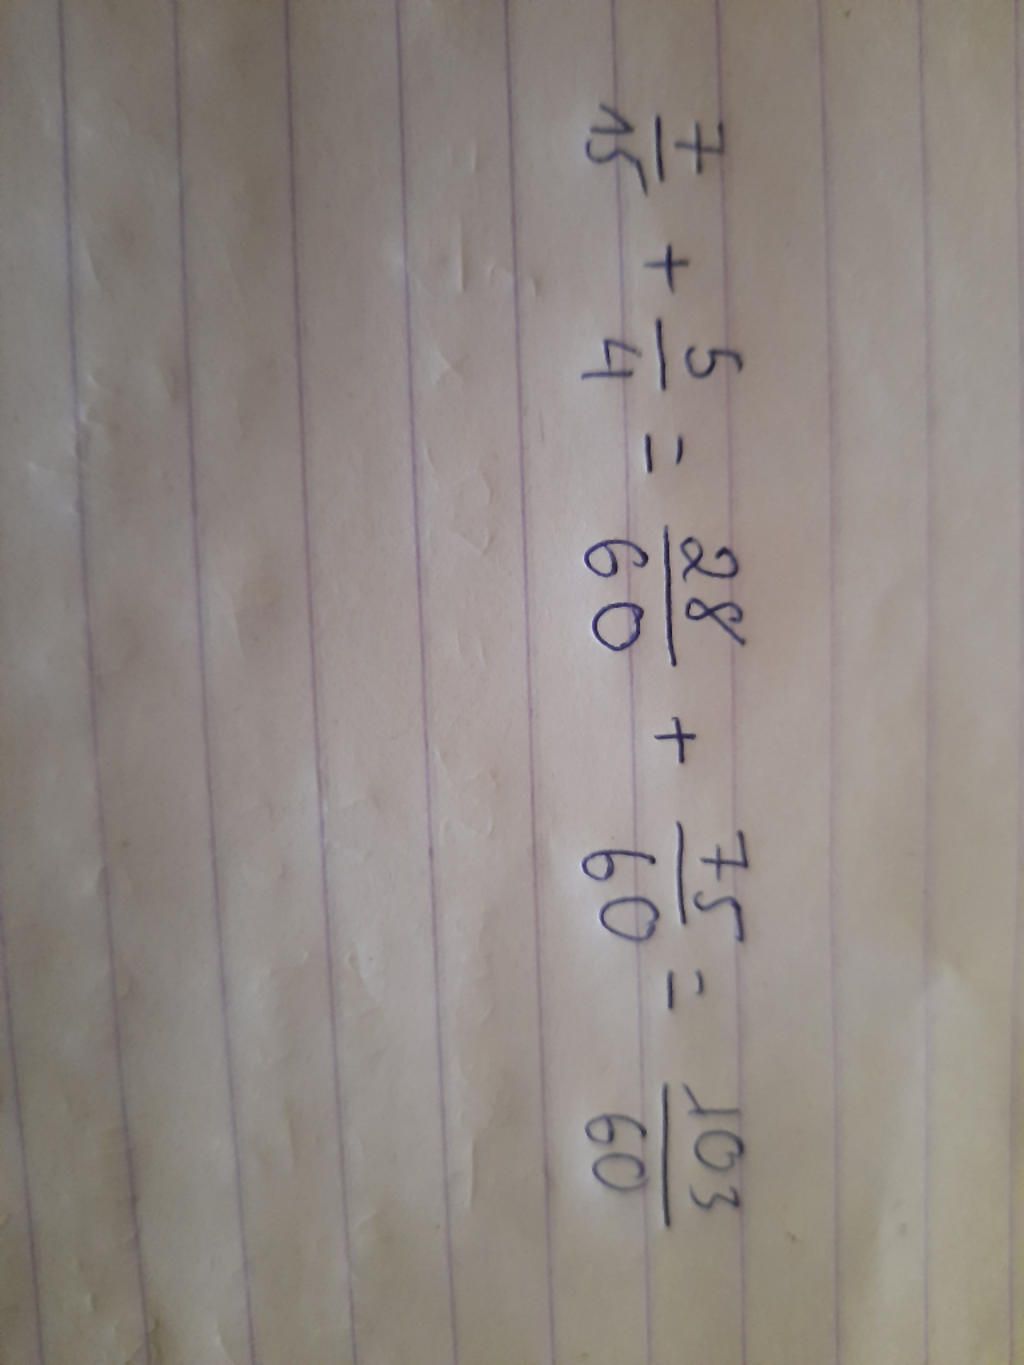 7/15 + 5/4 = 28/60 + 75/60 = 103/60